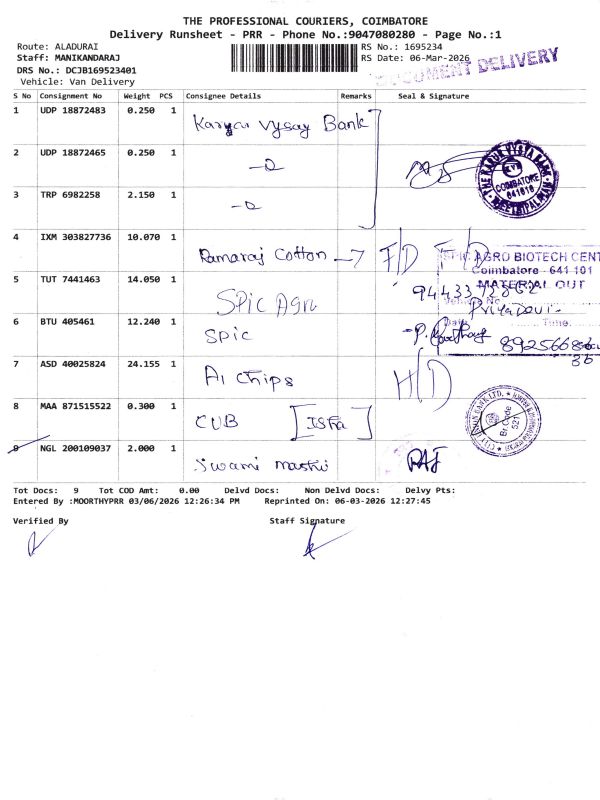 THE PROFESSIONAL COURIERS, COIMBATORE
Delivery Runsheet - PRR - Phone No.:9047080280 - Page No.:1
Route: ALADURAI
RS No.: 1695234
Staff: MANIKANDARAJ
RS Date: 06-Mar-2026
DRS No.: DCJB169523401
Vehicle: Van Delivery
DOCUMENT DELIVERY
S No Consignment No Weight PCS Consignee Details Remarks Seal & Signature
1 UDP 18872483 0.250 1 Karur Vysay Bank
2 UDP 18872465 0.250 1
THE KARUR VYSYA BANK KVB COIMBATORE 641018
3 TRP 6982258 2.150 1
4 IXM 303827736 10.070 1 Ramaraj Cotton → F/D
SPIC AGRO BIOTECH CENT
Coimbatore - 641 101
MATERIAL OUT
5 TUT 7441463 14.050 1 SPIC Agro
Priya Devi
Date: Time:
6 BTU 405461 12.240 1 SPIC
7 ASD 40025824 24.155 1 A1 chips H/D
8 MAA 871515522 0.300 1 CUB [Isha]
Br. Code 521
9 NGL 200109037 2.000 1 Swami mashi RAJ
Tot Docs: 9 Tot COD Amt: 0.00 Delvd Docs: Non Delvd Docs: Delvy Pts:
Entered By :MOORTHYPRR 03/06/2026 12:26:34 PM Reprinted On: 06-03-2026 12:27:45
Verified By Staff Signature